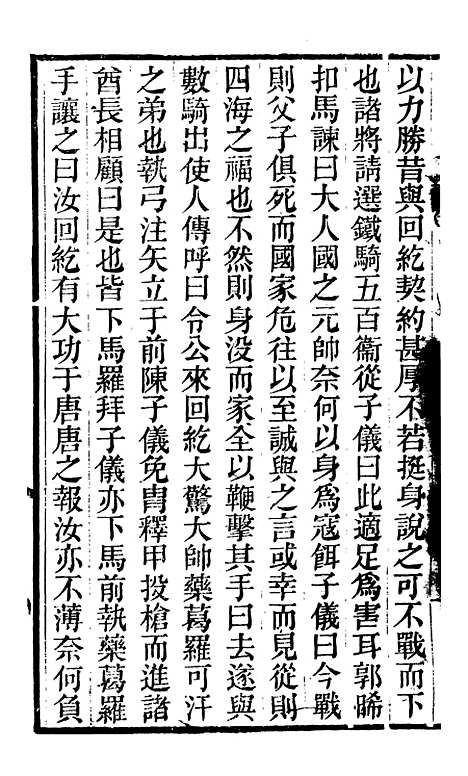 以力勝昔與回紇契約甚厚不若挺身說之可不戰而下
也諸將請選鐵騎五百衞從子儀曰此適足爲害耳郭晞
扣馬諫曰大人國之元帥奈何以身爲寇餌子儀曰今戰
則父子俱死而國家危往以至誠與之言或幸而見從則
四海之福也不然則身没而家全以鞭擊其手曰去遂與
數騎出使人傳呼曰令公來回紇大驚大帥藥葛羅可汗
之弟也執弓注矢立于前陳子儀免胄釋甲投槍而進諸
酋長相顧曰是也皆下馬羅拜子儀亦下馬前執藥葛羅
手讓之曰汝回紇有大功于唐唐之報汝亦不薄奈何負